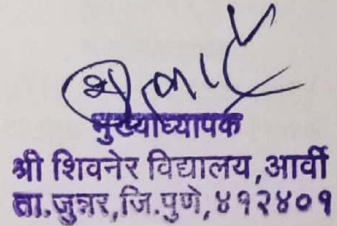 मुख्याध्यापक
श्री शिवनेर विद्यालय,आर्वी
ता.जुन्नर,जि.पुणे,४१२४०१